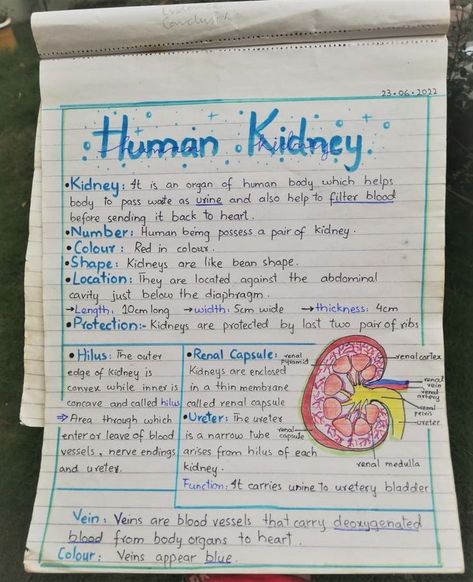 23.06.2022
Human Kidney
• Kidney: It is an organ of human body which helps
body to pass waste as urine and also help to filter blood
before sending it back to heart.
• Number: Human being possess a pair of kidney.
• Colour: Red in colour.
• Shape: Kidneys are like bean shape.
• Location: They are located against the abdominal
cavity just below the diaphragm.
→ Length: 10cm long → width: 5cm wide → thickness: 4cm
• Protection:- Kidneys are protected by last two pair of ribs
• Hilus: The outer
edge of kidney is
convex while inner is
concave and called hilus
⇒ Area through which
enter or leave of blood
vessels, nerve endings
and ureter.
• Renal Capsule:
Kidneys are enclosed
in a thin membrane
called renal capsule
• Ureter: The ureter
is a narrow tube
arises from hilus of each
kidney.
Function: It carries urine to uretery bladder
renal
pyramid
renal cortex
renal
vein
renal
artery
renal
pelvis
ureter
renal
capsule
renal medulla
Vein: Veins are blood vessels that carry deoxygenated
blood from body organs to heart.
Colour: Veins appear blue.